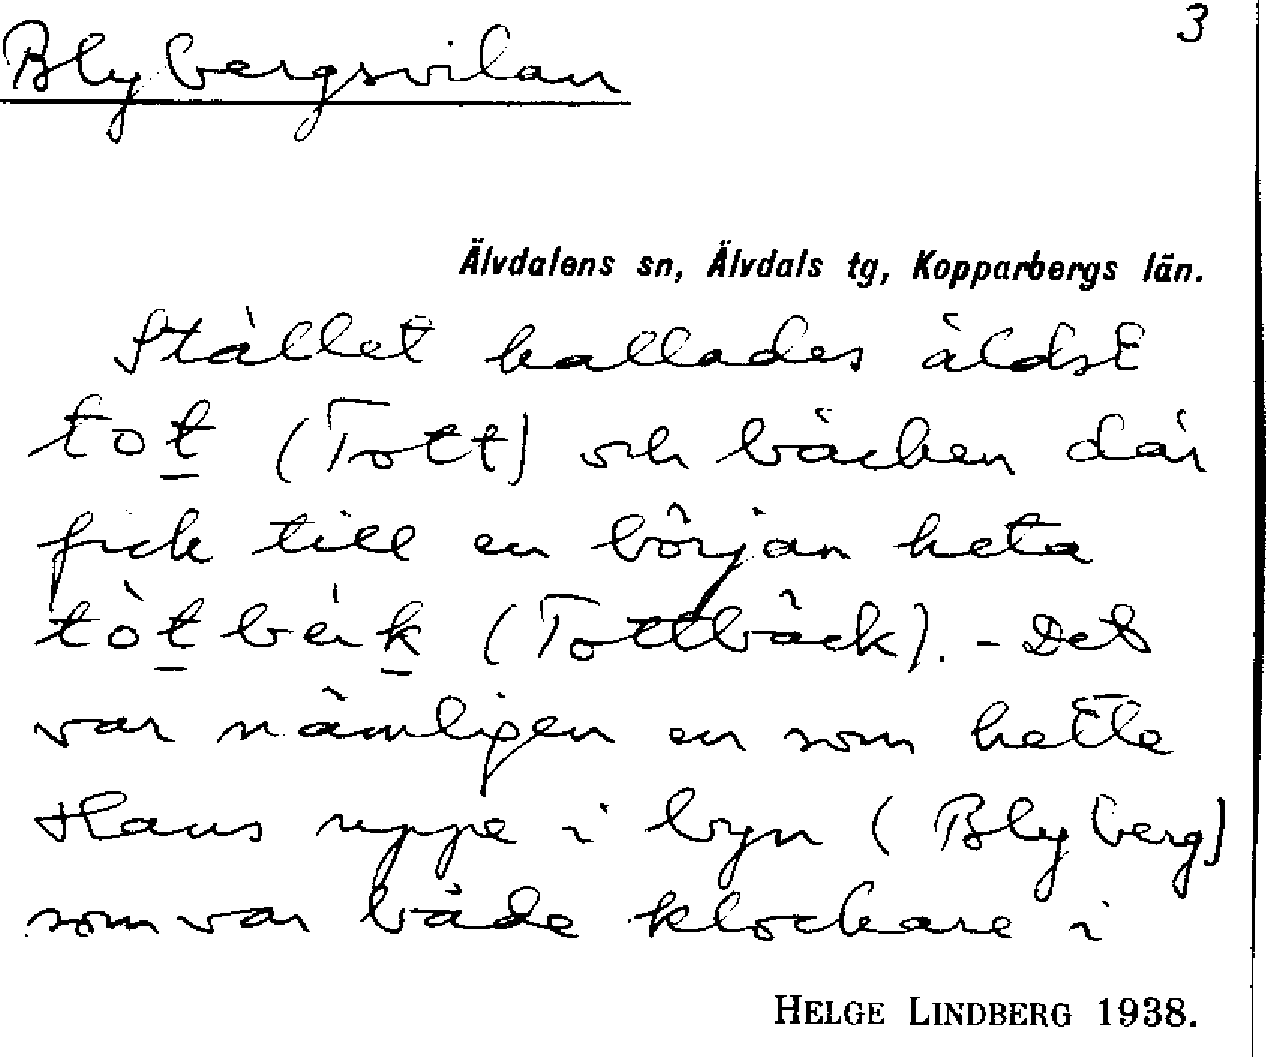 3
Blybergsvilan
Älvdalens sn, Älvdals tg, Kopparbergs län.
Stället kallades äldst
tot (Tott) och bäcken där
fick till en början heta
tòtbèk (Tottbäck). - Det
var nämligen en som hette
Hans uppe i byn (Blyberg)
som var både klockare i
HELGE LINDBERG 1938.